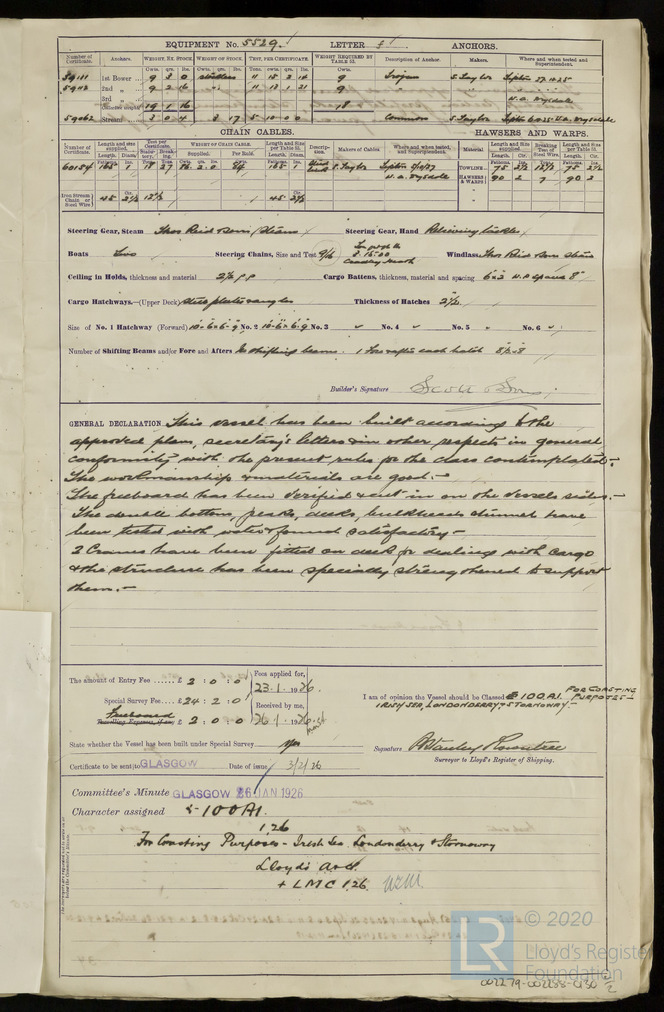 EQUIPMENT No. 5529. LETTER f ANCHORS.
Number of Certificate. Anchors. WEIGHT, EX. STOCK. WEIGHT OF STOCK. TEST, PER CERTIFICATE. WEIGHT REQUIRED BY TABLE 31. Description of Anchor. Makers. Where and when tested and Superintendent.
1st Bower 9 3 0 Stockless 11 15 2 14 9 Trojan S Taylor Tipton
2nd 9 2 16 11 13 1 21 9
3rd W.A. Drysdale
Collective weight 19 1 16 18
59062 Stream 3 0 4 3 17 5 10 0 0 Common S Taylor Tipton W.A. Drysdale
CHAIN CABLES. HAWSERS AND WARPS.
Number of Certificate. Length and size supplied. Test per Certificate. WEIGHT OF CHAIN CABLE. Length and Size per Table 31. Description. Makers of Cables. Where and when tested, and Superintendent. Material. Length and Size supplied. Breaking Test of Steel Wire. Length and Size per Table 31.
60154 165 1 18 27 165 1 Stud Link S. Taylor Tipton TOWLINE 75 2½ 75 2½
W.A. Drysdale HAWSERS & WARPS 90 2 7 90 2
Iron Stream Chain or Steel Wire 45 2½ 45 2½
Steering Gear, Steam Thos Reid & Sons / Steam Steering Gear, Hand Relieving tackles
Boats Two Steering Chains, Size and Test 9/16 Windlass Thos Reid & Sons Steam
Ceiling in Holds, thickness and material 2½ P P Cargo Battens, thickness, material and spacing 6×2 W.P. spaced 8"
Cargo Hatchways.—(Upper Deck) Steel plates & angles Thickness of Hatches 2½
Size of No. 1 Hatchway (Forward) No. 2 No. 3 " No. 4 " No. 5 " No. 6 "
Number of Shifting Beams and/or Fore and Afters No shifting beams. 1 Fore & after each hatch
Builder's Signature Scott & Sons
GENERAL DECLARATION This vessel has been built according to the
approved plans, secretary's letters & in other respects in general
conformity with the present rules for the class contemplated.-
The workmanship & materials are good.-
The freeboard has been verified & cut in on the vessels sides.-
The double bottom, peaks, decks, bulkheads & tunnel have
been tested with water & found satisfactory -
2 Cranes have been fitted on deck for dealing with cargo
& the structure has been specially strengthened to support
them.-
The amount of Entry Fee ...... £ 2 : 0 : 0
Fees applied for, 23.1.1926.
Special Survey Fee.... £ 24 : 2 : 0
Received by me, 26.1.1926
Freeboard £ 2 : 0 : 0
I am of opinion the Vessel should be Classed 100A1. FOR COASTING PURPOSES -
IRISH SEA, LONDONDERRY & STORNOWAY -
State whether the Vessel has been built under Special Survey Yes
Signature R Stanley Rowntree
Surveyor to Lloyd's Register of Shipping.
Certificate to be sent to GLASGOW Date of issue 3/2/26
Committee's Minute GLASGOW 26 JAN 1926
Character assigned 100A1.
1.26
For Coasting Purposes - Irish Sea Londonderry & Stornoway
Lloyd's A & C.
+ LMC 1.26
LR © 2020
Lloyd's Register
Foundation
002279-002288-0130 2/2